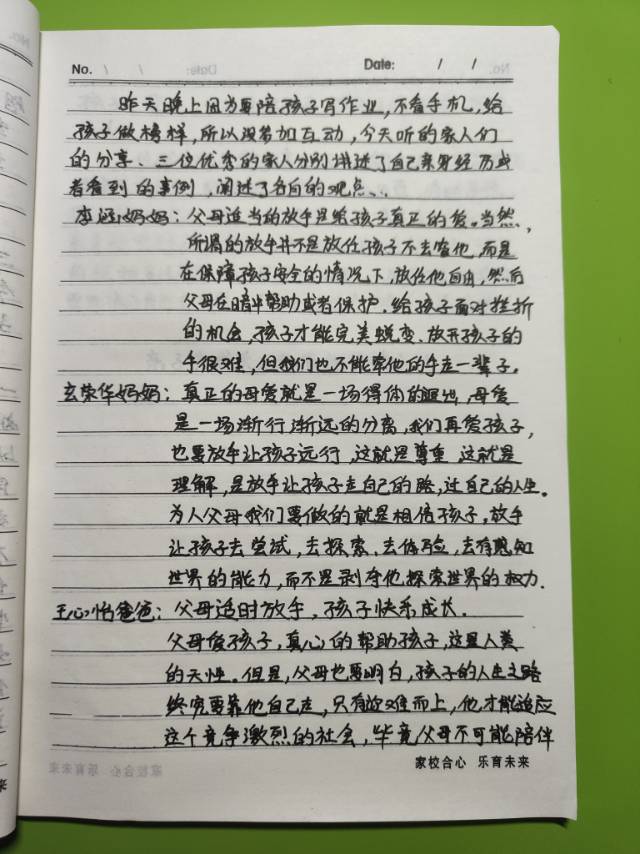 No. / Date: / /
昨天晚上因为要陪孩子写作业,不看手机,给
孩子做榜样,所以没参加互动,今天听的家人们
的分享、三位优秀的家人分别讲述了自己亲身经历或
者看到的事例,阐述了各自的观点、、
李涵妈妈:父母适当的放手是给孩子真正的爱。当然,
所谓的放手并不是放任孩子不去管他,而是
在保障孩子安全的情况下,放任他自由,然后
父母在暗中帮助或者保护.给孩子面对挫折
的机会,孩子才能完美蜕变.放开孩子的
手很难,但我们也不能牵他的手走一辈子.
玄荣华妈妈:真正的母爱就是一场得体的退出,母爱
是一场渐行渐远的分离,我们再爱孩子,
也要放手让孩子远行,这就是尊重 这就是
理解,是放手让孩子走自己的路,过自己的人生。
为人父母我们要做的就是相信孩子,放手
让孩子去尝试,去探索、去体验,去有感知
世界的能力,而不是剥夺他探索世界的权力.
王心怡爸爸:父母适时放手,孩子快乐成长.
父母 孩子,真心的帮助孩子,这是人类
的天性。但是,父母也要明白,孩子的人生之路
终究要靠他自己走,只有迎难而上,他才能适应
这个竞争激烈的社会,毕竟父母不可能陪伴
家校合心 乐育未来